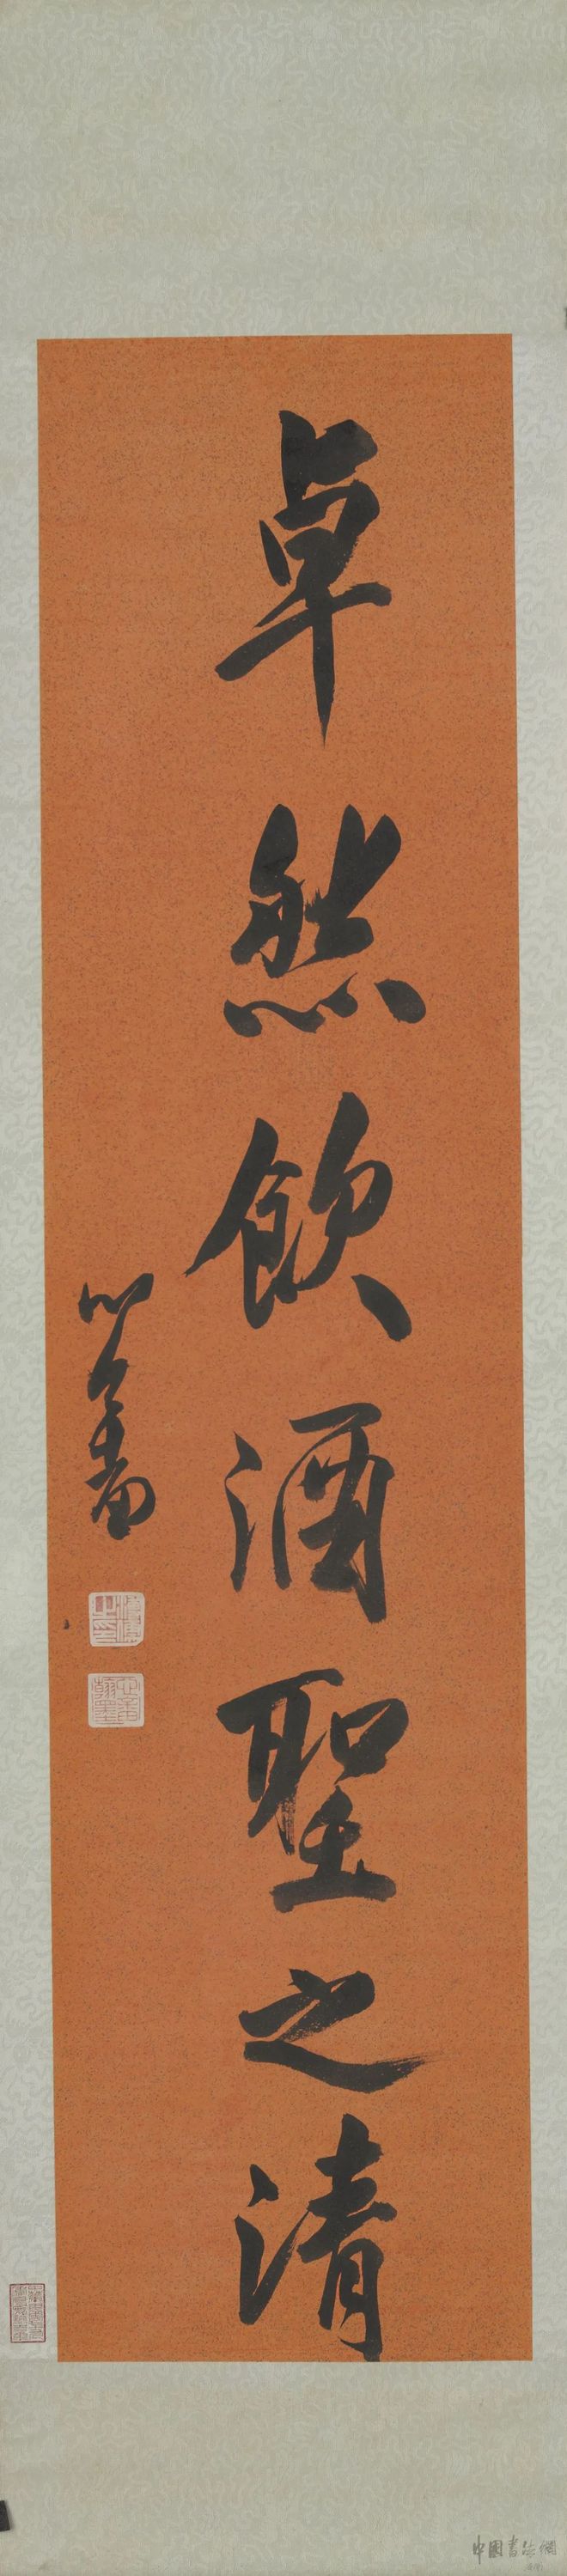 卓然飲酒聖之清
心畬
中國書法網